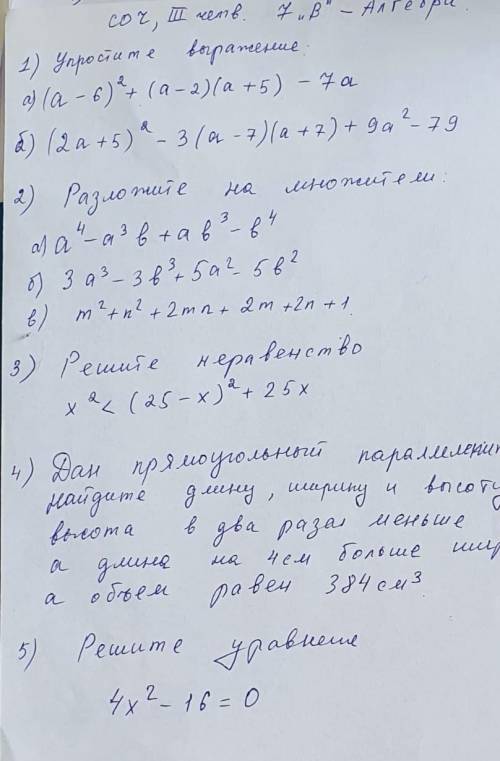 СОЧ, III четв. 7 "В" - Алгебра.
1) Упростите выражение:
а) (a - 6)² + (a - 2)(a + 5) - 7a
б) (2a + 5)² - 3(a - 7)(a + 7) + 9a² - 79
2) Разложите на множители:
а) a⁴ - a³b + ab³ - b⁴
б) 3a³ - 3b³ + 5a² - 5b²
в) m² + n² + 2mn + 2m + 2n + 1.
3) Решите неравенство
x² < (25 - x)² + 25x
4) Дан прямоугольный
найдите длину, ширину и высоту
высота в два раза меньше
а длина на 4 см больше
а объем равен 384 см³
5) Решите уравнение
4x² - 16 = 0